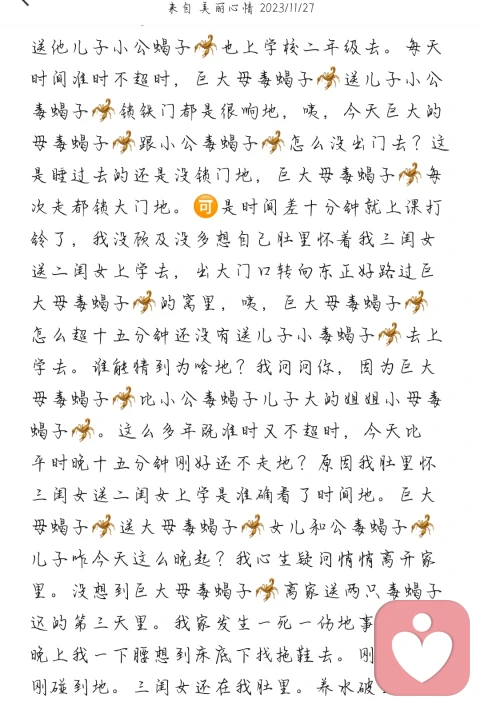 来自 美丽心情 2023/11/27
送他儿子小公蝎子🦂也上学校二年级去。每天
时间准时不超时，巨大母毒蝎子🦂送儿子小公
毒蝎子🦂锁铁门都是很响地，咦，今天巨大的
母毒蝎子🦂跟小公毒蝎子🦂怎么没出门去？这
是睡过去的还是没锁门地，巨大母毒蝎子🦂每
次走都锁大门地。🉑是时间差十分钟就上课打
铃了，我没顾及没多想自己肚里怀着我三闺女
送二闺女上学去，出大门口转向东正好路过巨
大母毒蝎子🦂的窝里，咦，巨大母毒蝎子🦂
怎么超十五分钟还没有送儿子小毒蝎子🦂去上
学去。谁能猜到为啥地？我问问你，因为巨大
母毒蝎子🦂比小公毒蝎子儿子大的姐姐小母毒
蝎子🦂。这么多年既准时又不超时，今天比
平时晚十五分钟刚好还不走地？原因我肚里怀
三闺女送二闺女上学是准确看了时间地。巨大
母蝎子🦂送大母毒蝎子🦂女儿和公毒蝎子🦂
儿子咋今天这么晚起？我心生疑问悄悄离开家
里。没想到巨大母毒蝎子🦂离家送两只毒蝎子
这的第三天里。我家发生一死一伤地事
晚上我一下腰想到床底下找拖鞋去。刚
刚碰到地。三闺女还在我肚里。养水破